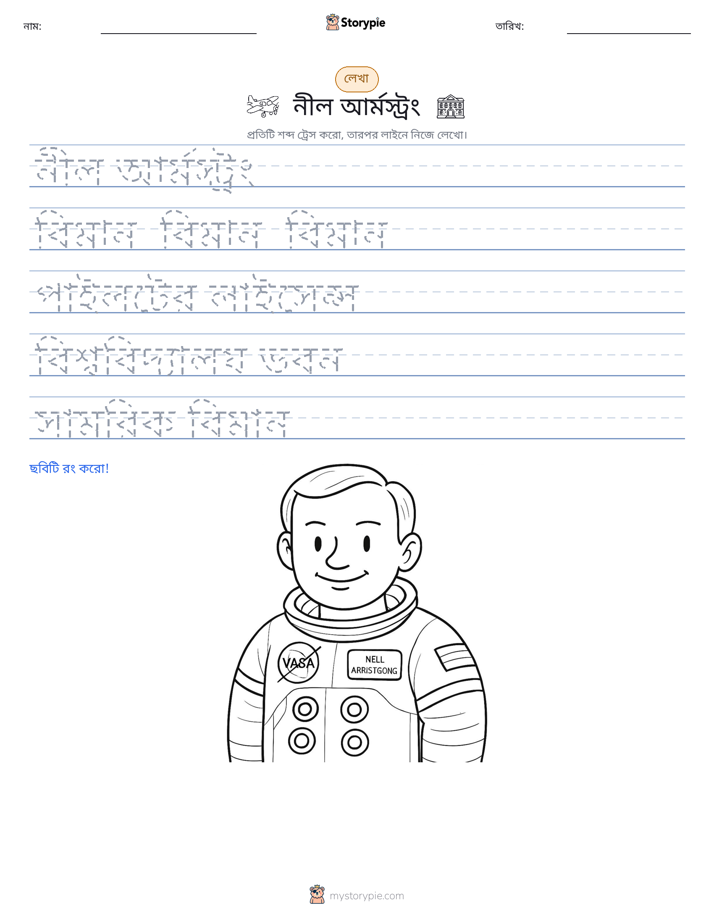 নাম:
Storypie
তারিখ:
লেখা
নীল আর্মস্ট্রং
প্রতিটি শব্দ ট্রেস করো, তারপর লাইনে নিজে লেখো।
নীল আর্মস্ট্রং
বিমান বিমান বিমান
পাইলটের লাইসেন্স
বিশ্ববিদ্যালয় ভবন
সামরিক বিমান
ছবিটি রং করো!
VASA
NELL
ARRISTGONG
mystorypie.com